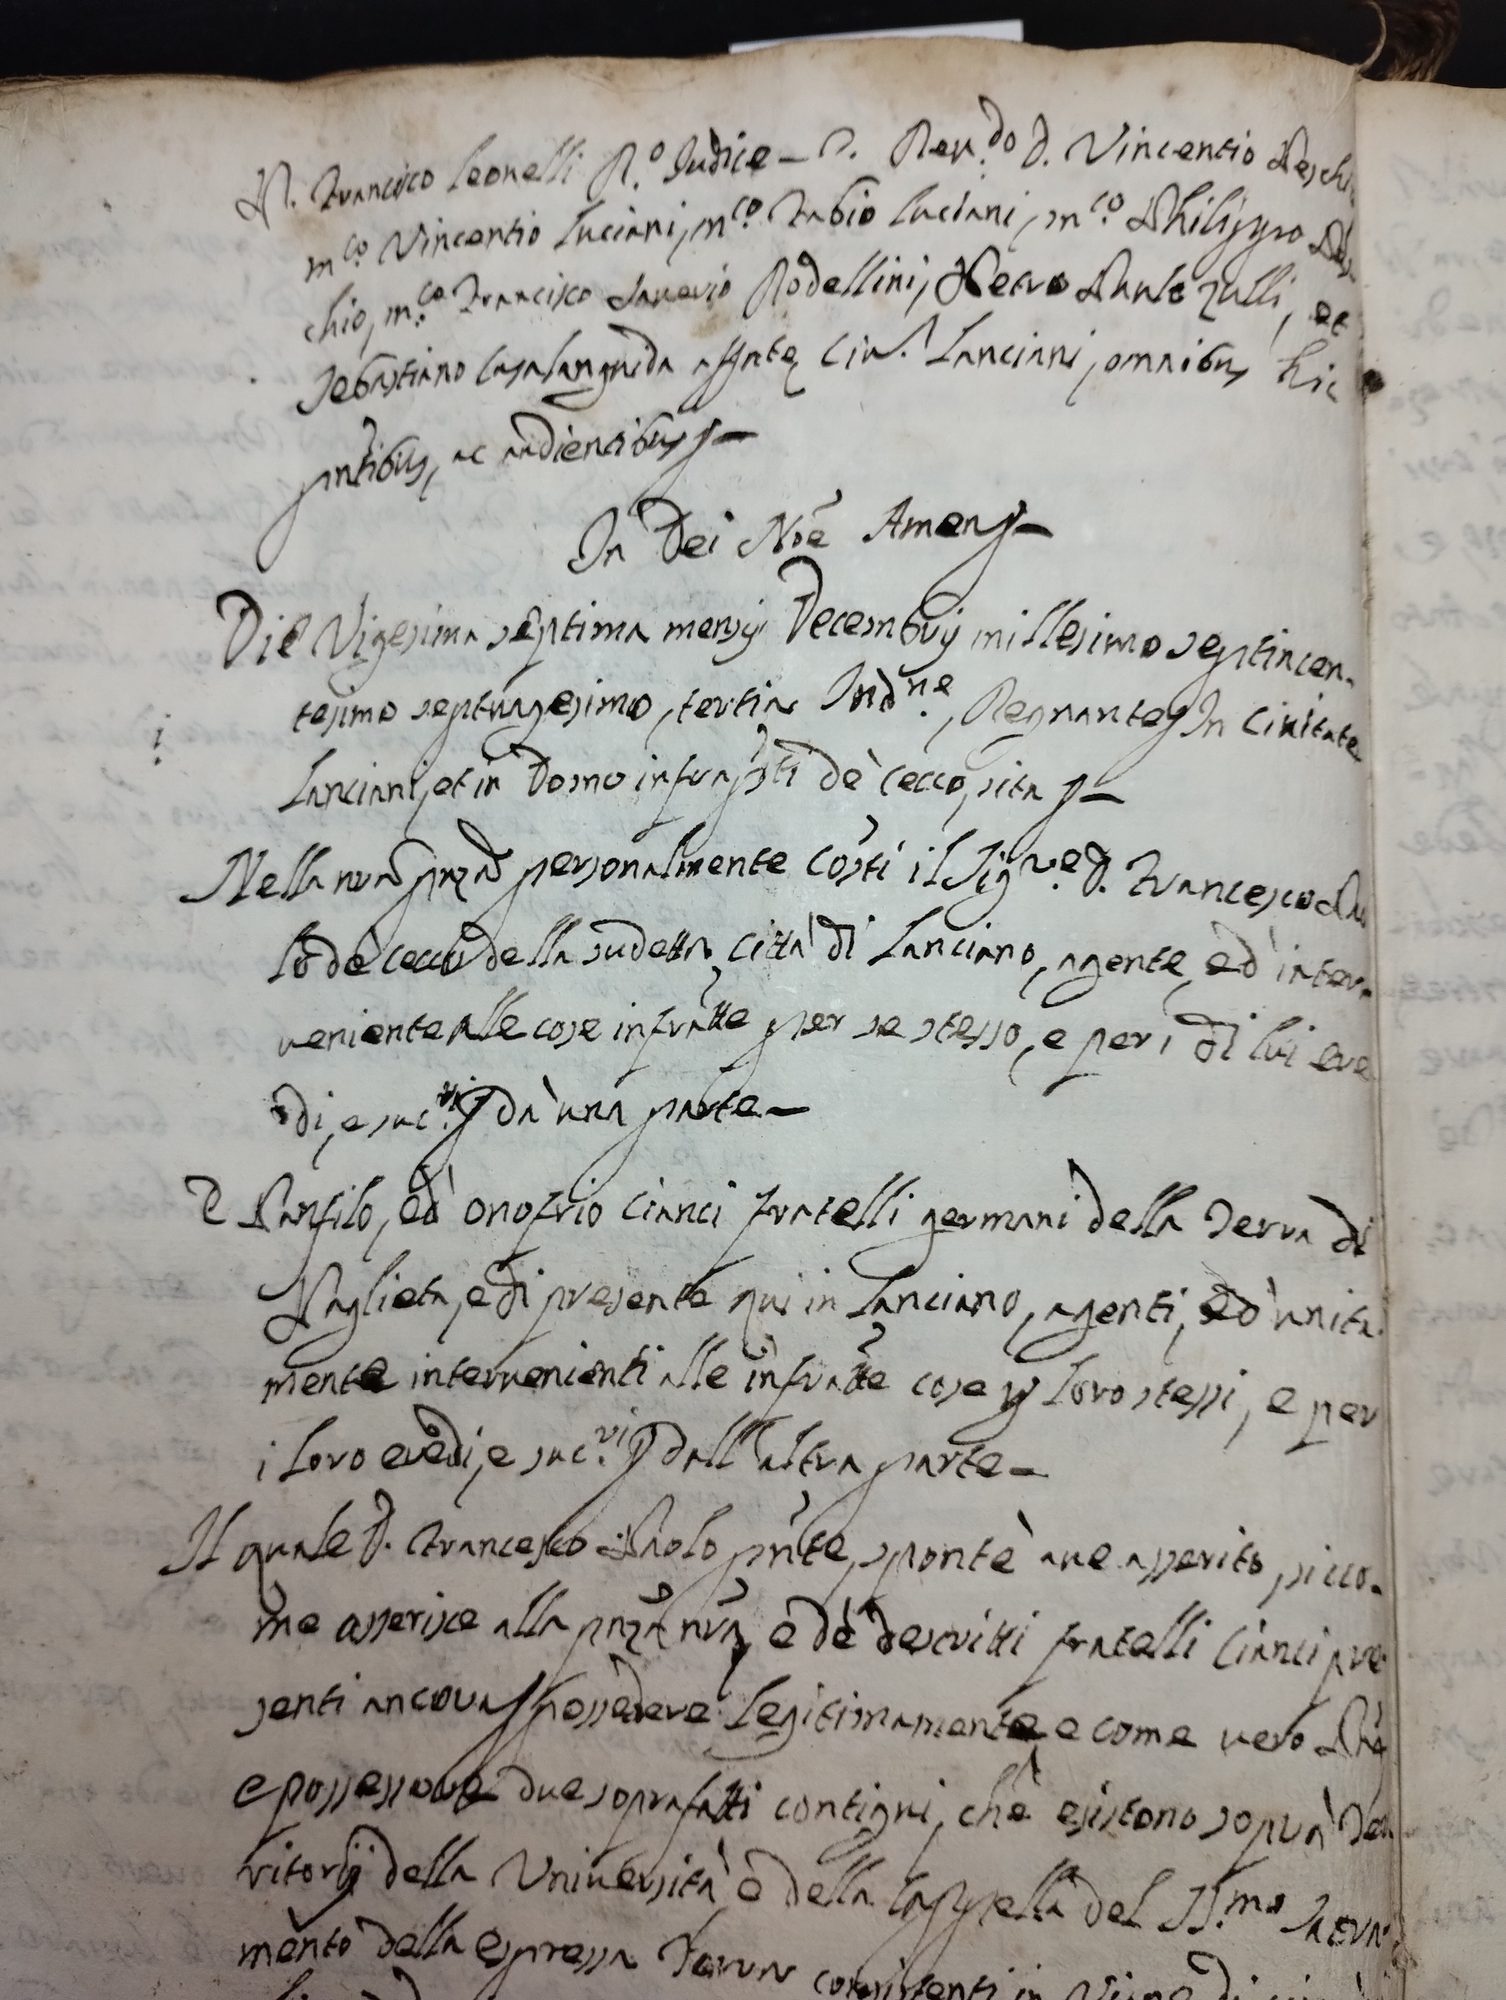 N. Francisco Leonelli R.º Judice — D. Rev.do D. Vincentio
m.co Vincentio Luciani, m.co Fabio Luciani, m.co Philippo
chio, m.co Francisco Saverio Rodellini, Petro Paulo Zulli, et
Sebastiano Casalanguida Civ. Lanciani, omnibus hic
pntibus, ac audientibus —
In Dei Nõe Amen —
Die Vigesima septima mensis Decembris millesimo septincen-
tesimo septuagesimo, tertia Indne, Regnante In Civitate
Lanciani, et in Domo infraptti dè Cecco, sita —
Nella nrã pnzã personalmente cosẗti il Sigre D. Francesco Pao
lo dè Cecco della sudetta Città di Lanciano, agente, ed inter-
veniente alle cose infratte per se stesso, e per i di lui ere
di, e suc.ri dà una parte —
E Panfilo, ed Onofrio Cianci fratelli germani della Terra di
Paglieta, e di presente qui in Lanciano, agenti, ed unita
mente intervenienti alle infratte cose p loro stessi, e per
i loro eredi, e suc.ri dall'altra parte —
Il quale D. Francesco Paolo pnte, spontè ave asserito, sicco-
me asserisce alla pnzã nrã, e dè descritti fratelli Cianci pre
senti ancora possedere legitimamente e come vero
e possessore due soprafatti contigui, che esistono sopra Ter
ritorij della Università, e della Cappella del SS.mo Sacra
mento della espressa Terra consistenti in Vigne di